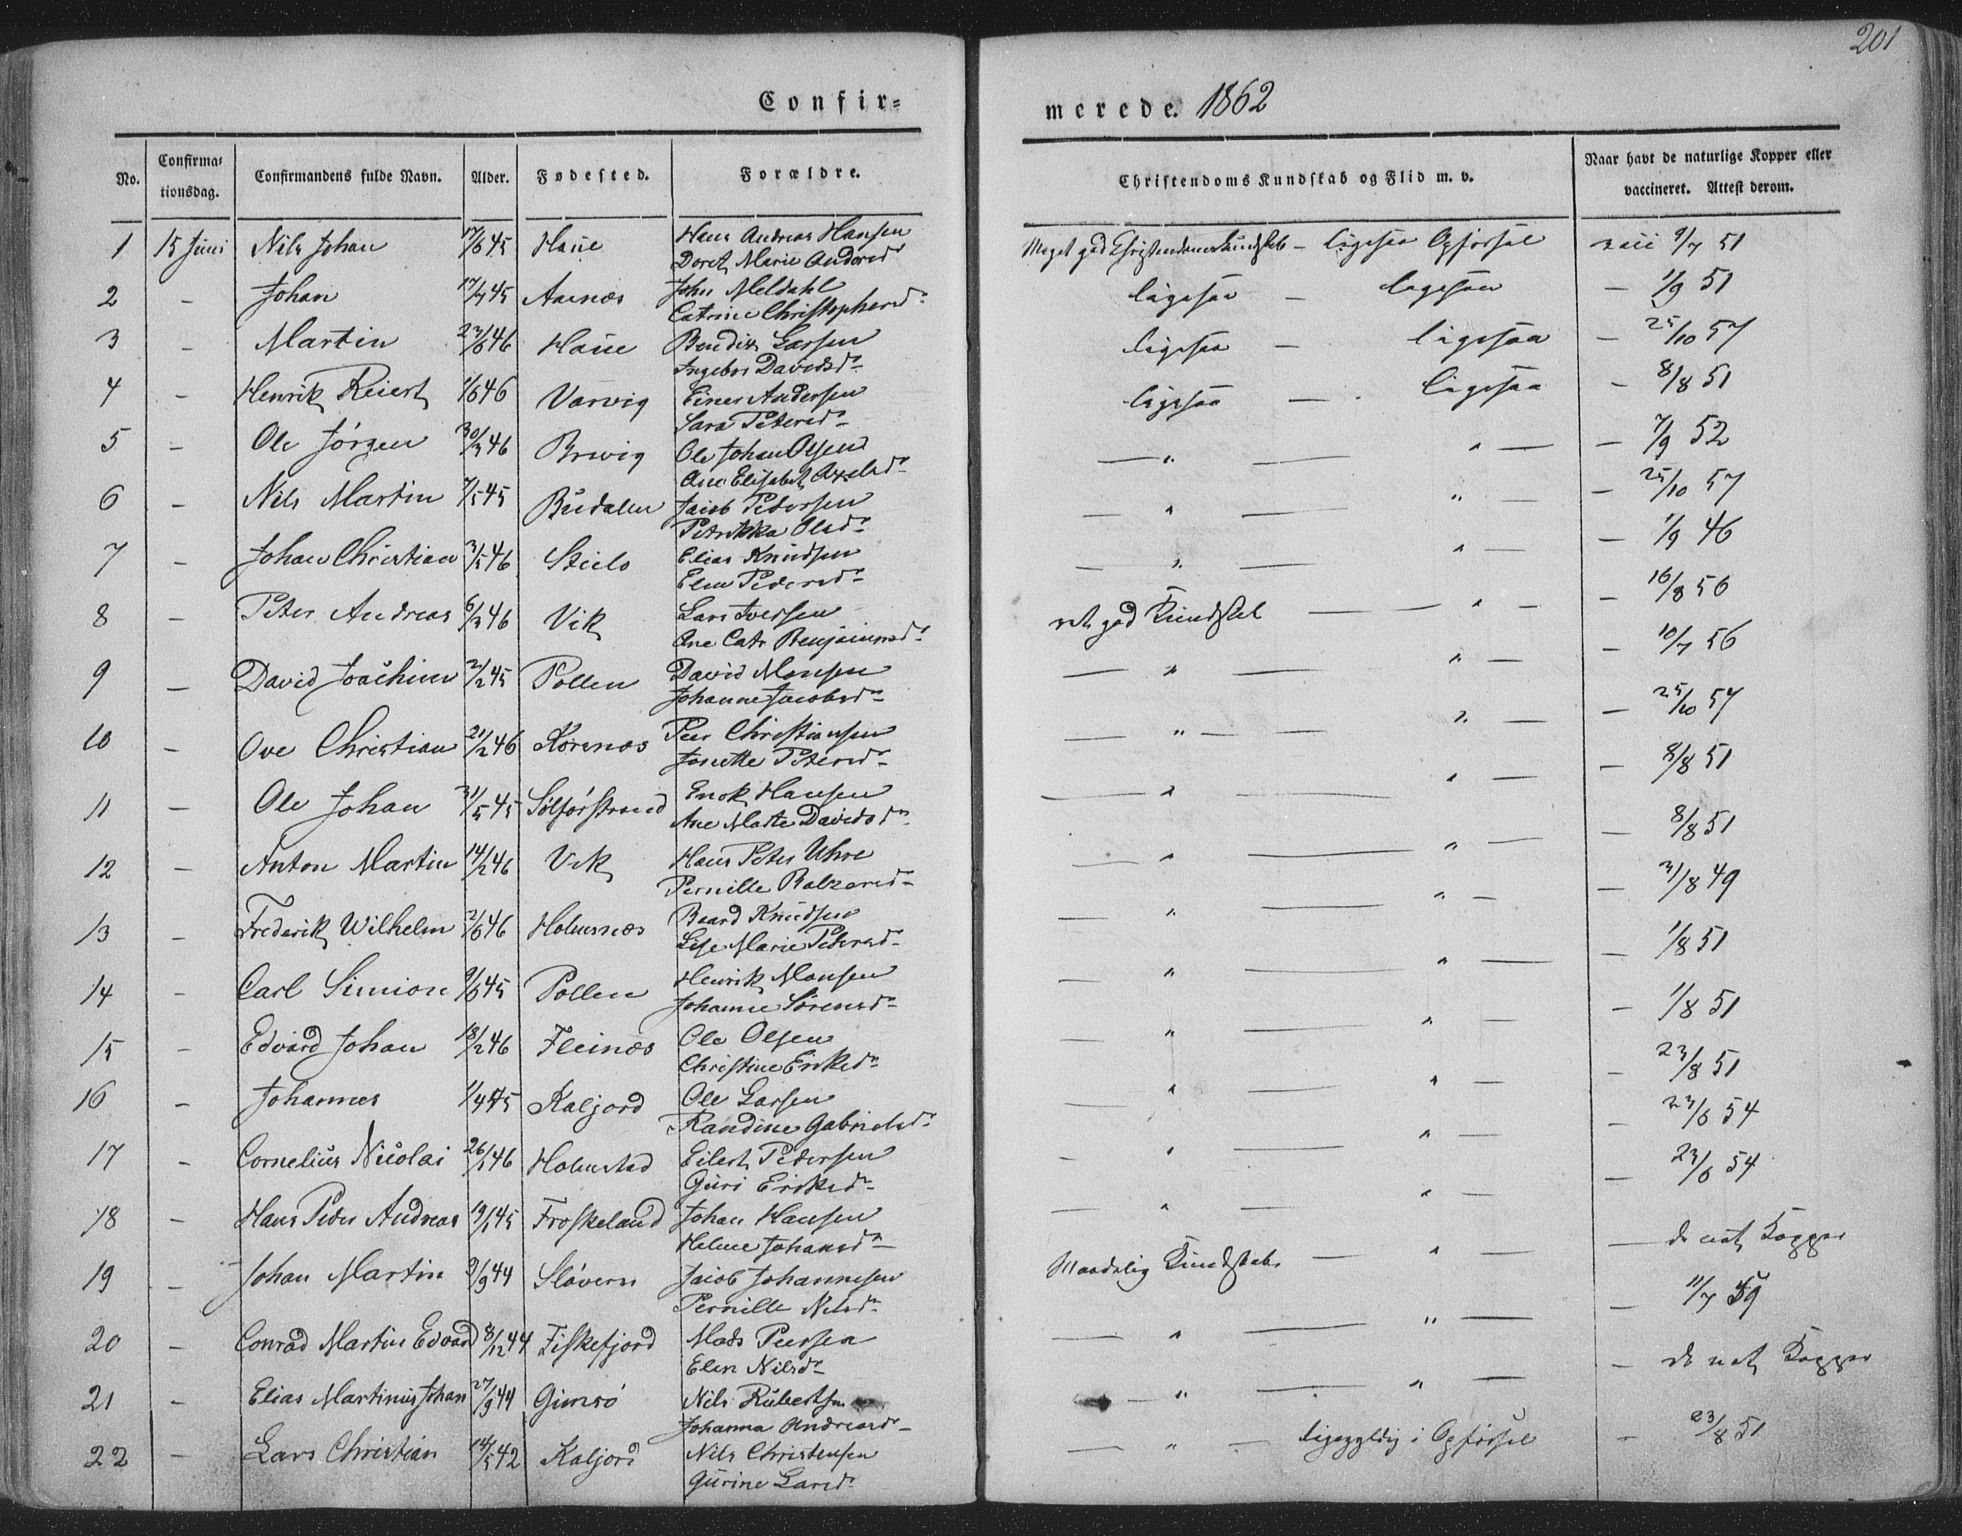 201
Confir-
merede. 1862
No.
Confirma-
tionsdag.
Confirmandens fulde Navn.
Alder.
Fødested.
Forældre.
Christendoms Kundskab og Flid m. v.
Naar havt de naturlige Kopper eller
vaccineret. Attest derom.
1 15 Juni Nils Johan 45 Haue Hans Andreas Hansen Meget god Christendomskundskab – ligesaa Opførsel 9/7 51
Doret Marie Andersd
2 – Johan 17/7 45 Aarnæs John Meldahl ligesaa – ligesaa – 1/9 51
Catrine Christophersd
3 – Martin 46 Haue Bendix Larsen ligesaa – ligesaa – 25/10 57
Ingebor Davidsd
4 – Henrik Reiert 46 Varvig Einer Andersen ligesaa – ligesaa – 8/8 51
Sara Petersd
5 – Ole Jørgen 46 Brevig Ole Johan Olsen — " — " — – 7/9 52
Ane Elisabet Axelsd
6 – Nils Martin 7/5 45 Budalen Jacob Pedersen — " — " — – 25/10 57
Petrikka Olsd
7 – Johan Christian 46 Steilo Elias Knudsen — " — " — – 1/9 46
Elen Pedersd
8 – Peter Andreas 46 Vik Lars Iversen ret god Kundskab — " – – 16/8 56
Ane Catr Benjaminsd
9 – David Joachim 2/2 45 Pollen David Monsen — " — " — – 10/7 56
Johanne Jacobsd
10 – Ove Christian 21/2 46 Korsnæs Peer Christiansen — " — " — – 25/10 57
Jonette Petersd
11 – Ole Johan 31/5 45 Sølførstrand Enok Hansen — " — " — – 8/8 51
Ane Marte Davidsd
12 – Anton Martin 14/2 46 Vik Hans Peter Uhre — " — " — – 8/8 51
Pernille Balzersd
13 – Frederik Wilhelm 46 Holmsnæs Baard Knudsen — " — " – – 3/8 49
Lise Marie Pedersd
14 – Carl Simion 45 Pollen Henrik Monsen — " — " — – 1/8 51
Johanne Sørensd
15 – Edvard Johan 18/2 46 Fleinæs Ole Olsen — " — " — – 1/8 51
Christine Eriksd
16 – Johannes 45 Kaljord Ole Larsen — " — " — – 23/8 51
Randine Gabrielsd
17 – Cornelius Nicolai 26/1 46 Holmstad Eilert Pedersen — " — " — – 23/6 54
Guri Eriksd
18 – Hans Peder Andreas 19/1 45 Froskeland Johan Hansen — " — " — – 23/6 54
Helene Johansd
19 – Johan Martin 9/9 44 Sløveren Jacob Johannesen Maadelig Kundskab — " — – de nat Kopper
Pernille Nilsd
20 – Conrad Martin Edvard 8/12 44 Fiskefjord Mads Peersen — " — " — – 11/7 59
Elen Nilsd
21 – Elias Martinus Johan 27/9 44 Gimsø Nils Rubertsen — " — " — – de nat Kopper
Johanna Andreasd
22 – Lars Christian 14/5 42 Kaljord Nils Christensen — " — ligegyldig i Opførsel – 23/8 51
Gurine Larsd